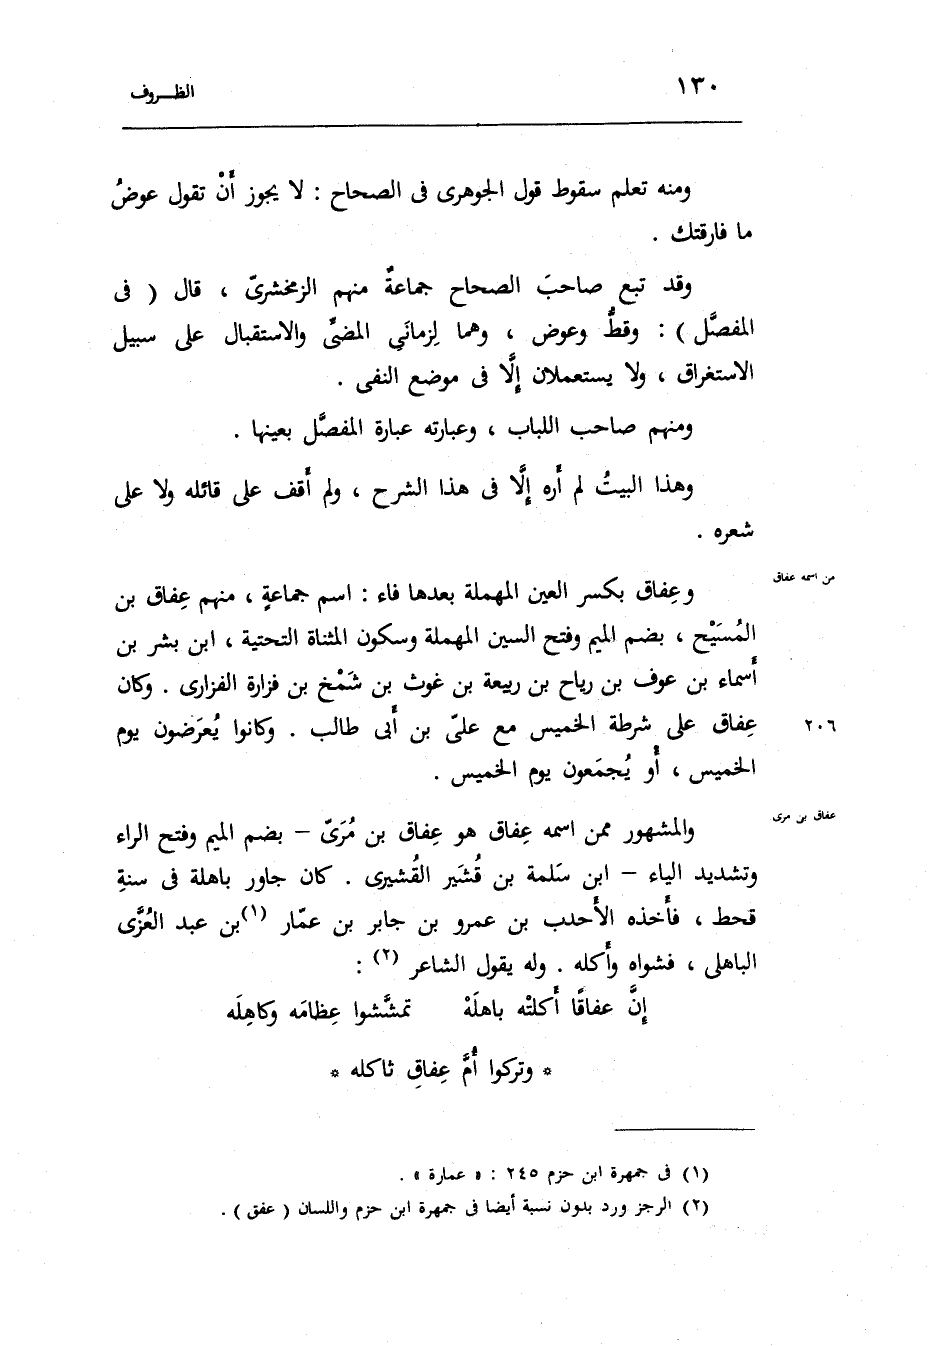 ١٣٠
الظـروف
ومنه تعلم سقوط قول الجوهرى فى الصحاح : لا يجوز أَنْ تقول عوضُ
ما فارقتك .
وقد تبع صاحبَ الصحاح جماعةٌ منهم الزمخشرىّ ، قال ( فى
المفصَّل ) : وقطُّ وعوض ، وهما لِزمانَىِ المضىِّ والاستقبال على سبيل
الاستغراق ، ولا يستعملان إِلَّا فى موضع النفى .
ومنهم صاحب اللباب ، وعبارته عبارة المفصَّل بعينها .
وهذا البيتُ لم أَره إِلَّا فى هذا الشرح ، ولم أَقف على قائله ولا على
شعره .
من اسمه عفاق
وعِفاق بكسر العين المهملة بعدها فاء : اسم جماعةٍ ، منهم عِفاق بن
المُسَيْح ، بضم الميم وفتح السين المهملة وسكون المثناة التحتية ، ابن بشر بن
أَسماء بن عوف بن رياح بن ربيعة بن غوث بن شَمْخ بن فزارة الفزارى . وكان
عِفاق على شرطة الخميس مع علىّ بن أَبى طالب . وكانوا يُعرَضون يوم
٢٠٦
الخميس ، أَو يُجمَعون يوم الخميس .
والمشهور ممن اسمه عِفاق هو عِفاق بن مُرَىّ – بضم الميم وفتح الراء
عفاق بن مرى
وتشديد الياء – ابن سَلمة بن قُشَير القُشيرى . كان جاور باهلة فى سنةِ
قحط ، فأَخذه الأَحدب بن عمرو بن جابر بن عمّار (١)بن عبد العُزَّى
الباهلى ، فشواه وأَكله . وله يقول الشاعر (٢) :
إِنَّ عفاقًا أَكلتْه باهلَهْ تمشَّشوا عِظامَه وكاهِلَه
* وتركوا أُمَّ عِفاقِ ثاكله *
(١) فى جمهرة ابن حزم ٢٤٥ : « عمارة » .
(٢) الرجز ورد بدون نسبة أيضا فى جمهرة ابن حزم واللسان ( عفق ) .